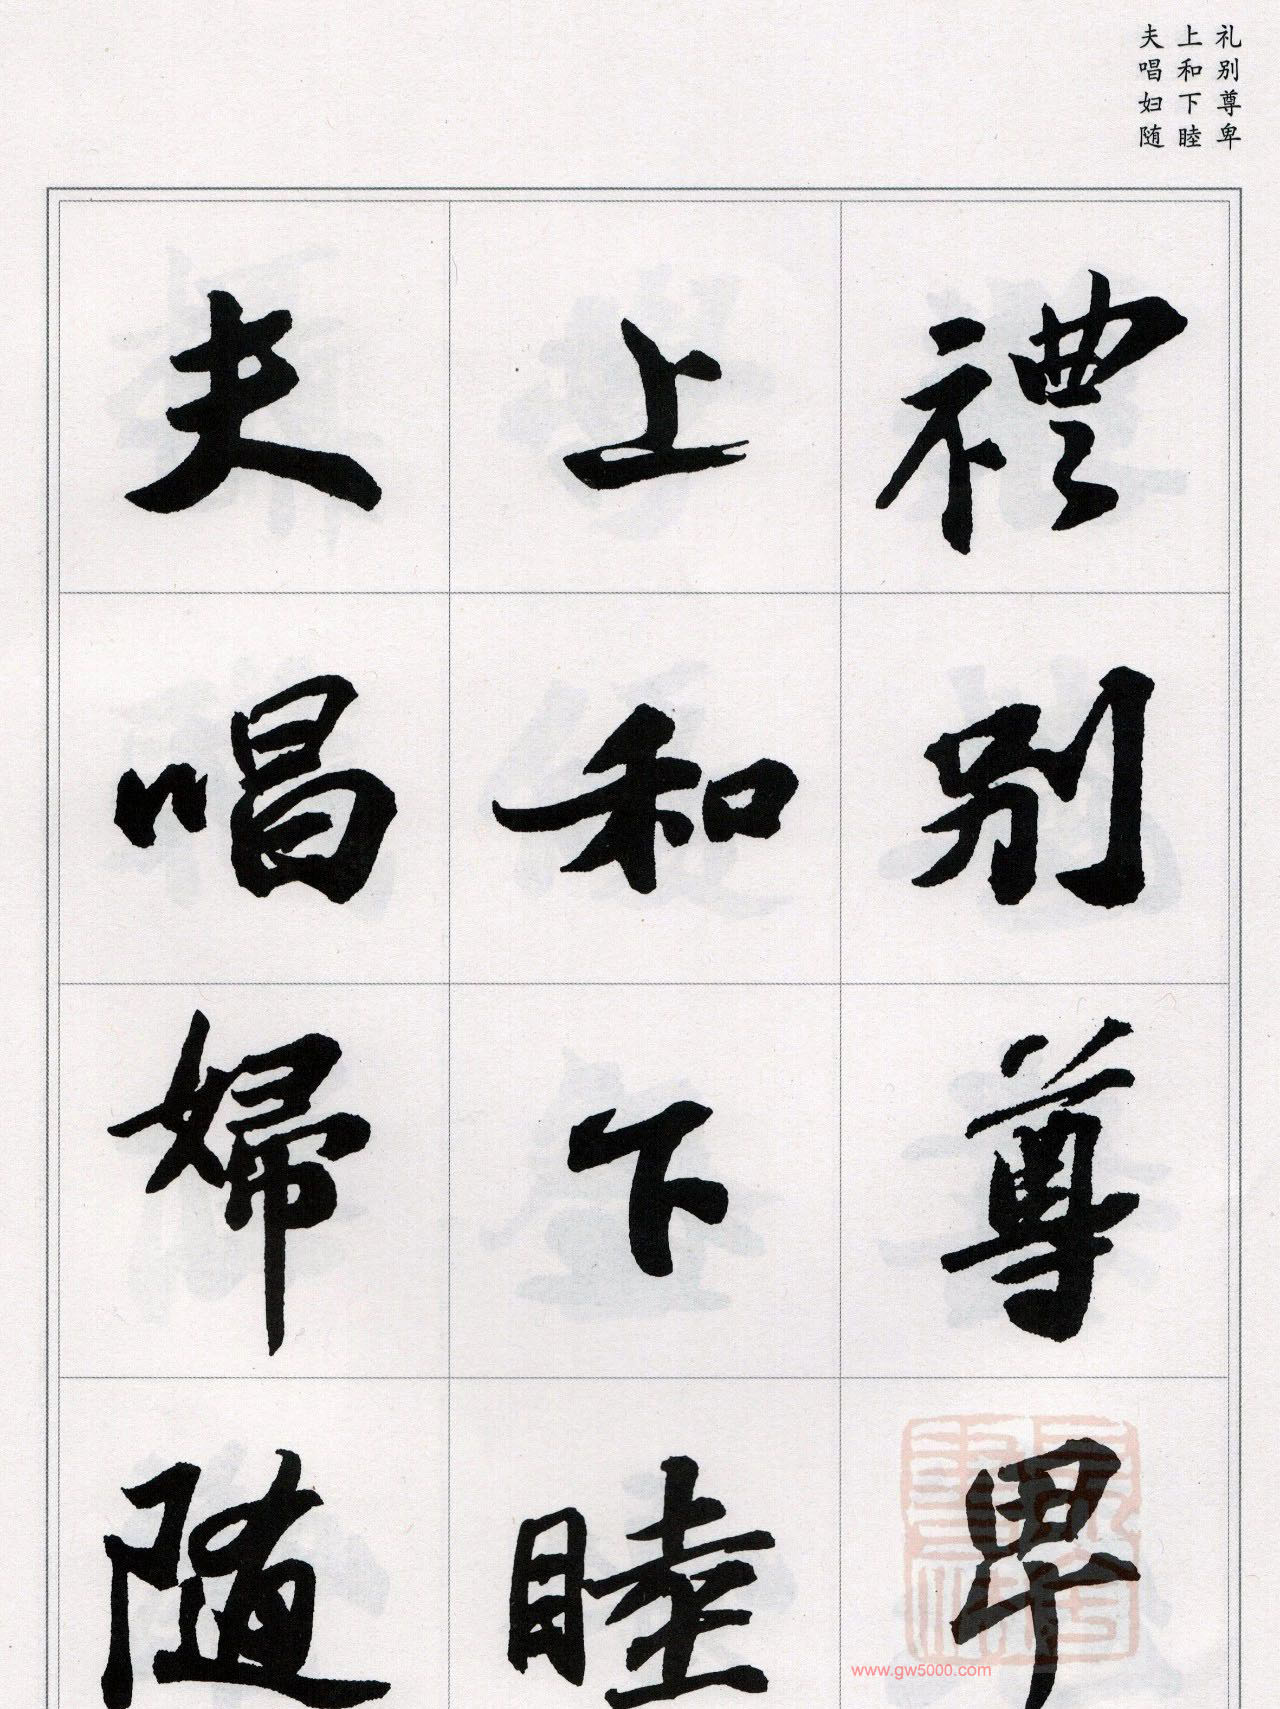 礼别尊卑
上和下睦
夫唱妇随
禮别尊卑
上和下睦
夫唱婦随
www.gw5000.com